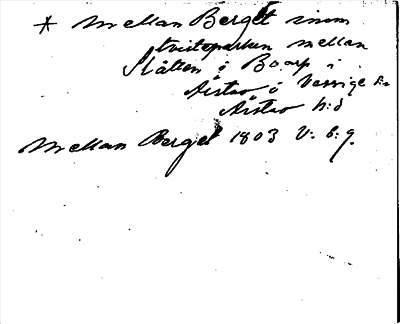 * Mellan Berget inom
tvisteparken mellan
Slätten å Boarp i
Årstad å Vessige s:n
Årstad h:d
Mellan Berget 1803 V. b:g.